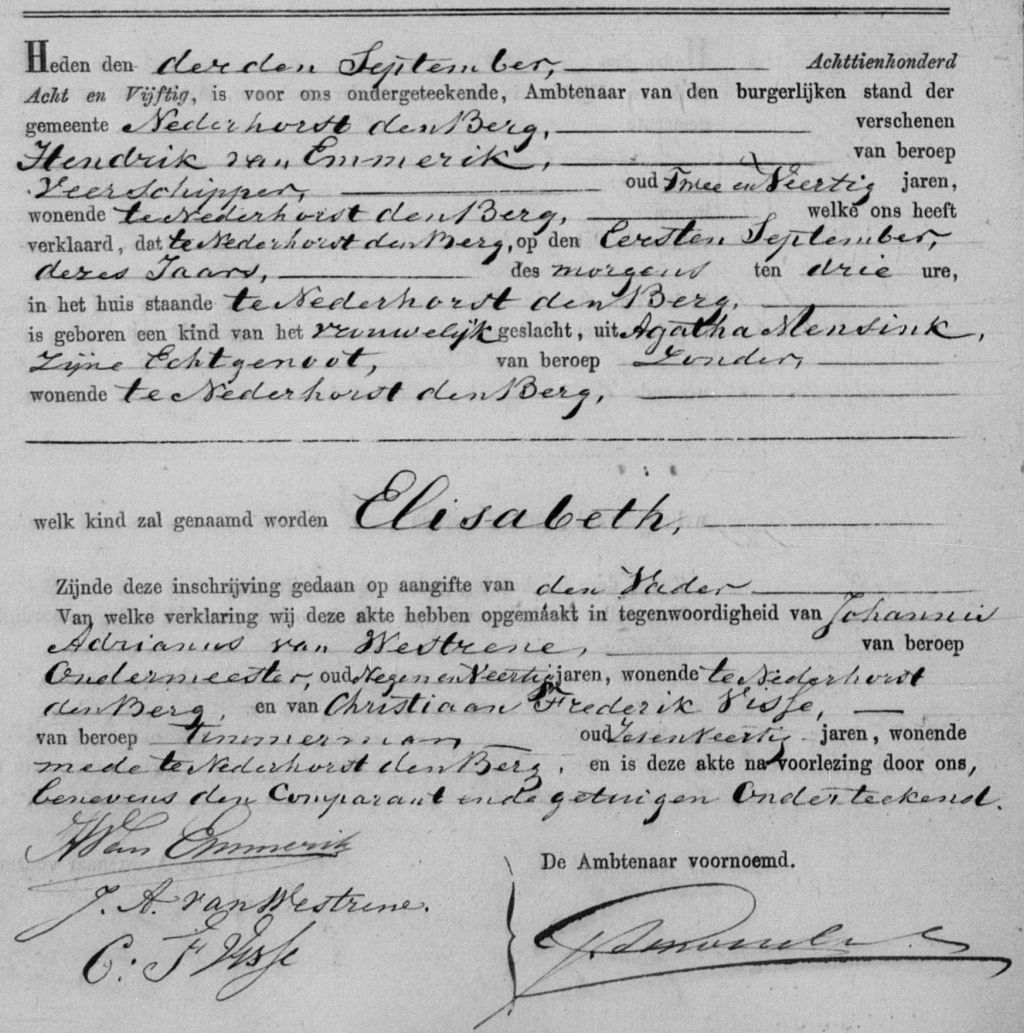 Heden den derden September, Achttienhonderd
Acht en Vijftig, is voor ons ondergeteekende, Ambtenaar van den burgerlijken stand der
gemeente Nederhorst den Berg, verschenen
Hendrik van Emmerik, van beroep
Veerschipper, oud Twee en Veertig jaren,
wonende te Nederhorst den Berg, welke ons heeft
verklaard, dat te Nederhorst den Berg, op den Eersten September,
dezes Jaars, des morgens ten drie ure,
in het huis staande te Nederhorst den Berg,
is geboren een kind van het vrouwelijk geslacht, uit Agatha Mensink,
Zijne Echtgenoot, van beroep Zonder,
wonende te Nederhorst den Berg,
welk kind zal genaamd worden Elisabeth,
Zijnde deze inschrijving gedaan op aangifte van den Vader
Van welke verklaring wij deze akte hebben opgemaakt in tegenwoordigheid van Johannis
Adrianus van Westrene, van beroep
Ondermeester, oud Negen en Veertig jaren, wonende te Nederhorst
den Berg, en van Christiaan Frederik Visse,
van beroep Timmerman oud Zesenveertig jaren, wonende
mede te Nederhorst den Berg, en is deze akte na voorlezing door ons,
benevens den Comparant en de getuigen Onderteekend.
H Van Emmerik
De Ambtenaar voornoemd.
J. A. van Westrene.
C: F Visse